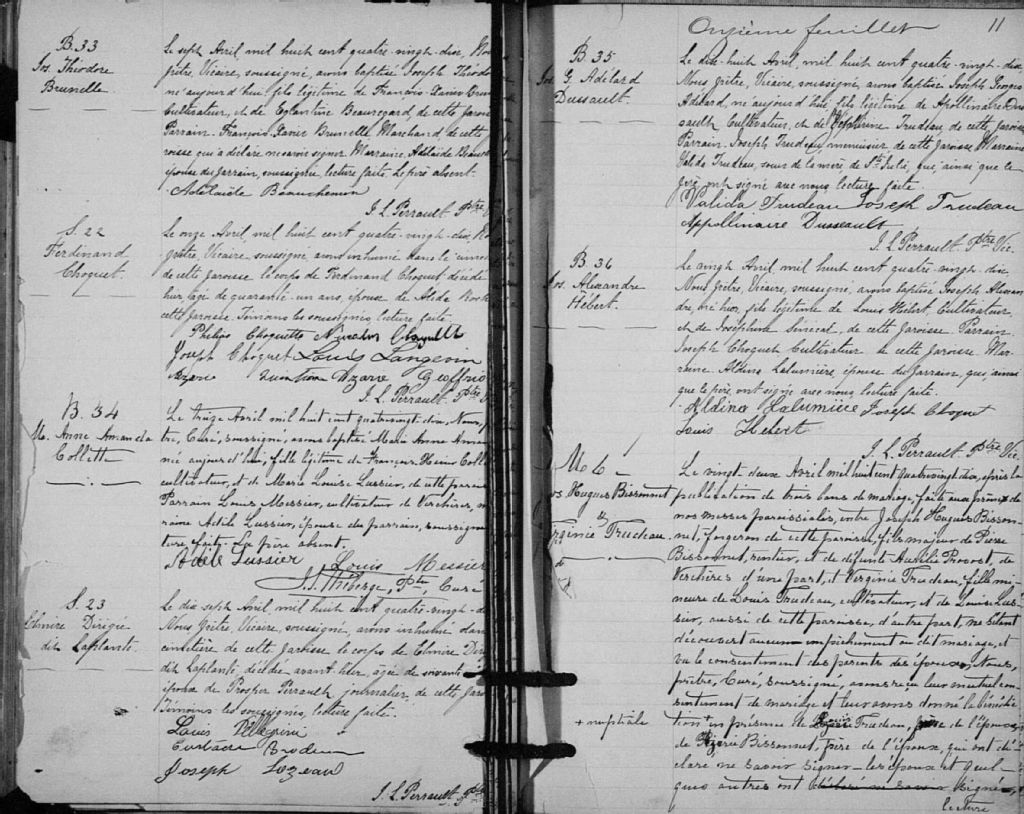 B. 33
Jos. Théodore
Brunelle
Le sept Avril, mil huit cent quatre-vingt-dix, No
prêtre, Vicaire, soussigné, avons baptisé Joseph Théodo
né aujourd'hui, fils légitime de François-Xavier Brun
Cultivateur, et de Eglantine Beauregard, de cette Parois
Parrain. François-Xavier Brunelle Marchand de cette
roisse qui a déclaré ne savoir signer. Marraine, Adélaïde Beauch
épouse du parrain, soussignée, lecture faite. Le père absent.
Adélaïde Beauchemin
J. L. Perrault Ptre
S. 22
Ferdinand
Choquet
Le onze Avril, mil huit cent quatre-vingt-dix, No
prêtre, Vicaire, soussigné, avons inhumé dans le cime
de cette Paroisse le corps de Ferdinand Choquet décédé
hier, âgé de quarante-un ans, époux de Alida
cette Paroisse. Témoins les soussignés, lecture faite.
Philips Choquette
Joseph Choquet Louis Langevin
Azarie Geoffrio
J. L. Perrault Ptre
B. 34
M. Anne Amanda
Collette
Le treize Avril mil huit cent quatrevingt-dix, Nous, p
tre, Curé, soussigné, avons baptisé Marie Anne Aman
née aujourd'hui, fille légitime de François-Henri Coll
cultivateur, et de Marie Louise Lussier, de cette parois
Parrain Louis Messier, cultivateur de Verchères, m
raine Adèle Lussier, épouse du parrain, soussignés
ture faite. Le père absent.
Adèle Lussier
Louis Messier
J. Théberge, Ptre, Curé
S. 23
Elmire Dirigée
dit Laplante
Le dix sept Avril, mil huit cent quatre-vingt-d
Nous Prêtre, Vicaire, soussigné, avons inhumé dan
cimetière de cette Paroisse le corps de Elmire Diri
dit Laplante décédée avant-hier, âgée de soixante
épouse de Prosper Perrault journalier de cette Paro
Témoins les soussignés, lecture faite.
Louis Pellegrini
Eustache Brodeur
Joseph Lozeau
J. L. Perrault Ptre
Onzième feuillet 11
B. 35
Jos. G. Adélard
Dussault.
Le dix-huit Avril, mil huit cent quatre-vingt-dix,
Nous, prêtre, Vicaire, soussigné, avons baptisé Joseph Georges
Adélard, né aujourd'hui, fils légitime de Apollinaire Dus
sault Cultivateur, et de Trudeau, de cette Paroisse
Parrain. Joseph Trudeau, menuisier de cette Paroisse Marraine
Valida Trudeau, soeur de la mère de Ste Julie, qui, ainsi que le
père ont signé avec nous lecture faite.
Valida Trudeau Joseph Trudeau
Appollinaire Dussault
J. L. Perrault Ptre Vic.
B. 36
Jos. Alexandre
Hébert.
Le vingt Avril, mil huit cent quatre-vingt-dix
Nous Prêtre, Vicaire, soussigné, avons baptisé Joseph Alexan
dre, né hier, fils légitime de Louis Hébert, Cultivateur,
et de Joséphine Sénécal, de cette Paroisse Parrain
Joseph Choquet Cultivateur de cette Paroisse. Mar
raine Aldina Lalumière épouse du parrain, qui, ainsi
que le père, ont signé avec nous, lecture faite.
Aldina Lalumière Joseph Choquet
Louis Hebert
J. L. Perrault Ptre Vic.
M 6
os Hugues Bissonnet
&
Virginie Trudeau.
Le vingt-deux Avril mil huit cent quatrevingt dix, après la
publication de trois bans de mariage, faite aux prônes de
nos messes paroissiales, entre Joseph Hugues Bisson-
net, forgeron de cette paroisse, fils majeur de Pierre
Bissonnet, rentier, et de défunte Aurélie Provost, de
Verchères d'une part, et Virginie Trudeau, fille mi-
neure de Louis Trudeau, cultivateur, et de Louise Lus-
sier, aussi de cette paroisse, d'autre part, ne s'étant
découvert aucun empêchement au dit mariage, et
vu le consentement des parents des époux, Nous,
prêtre, Curé, soussigné, avons reçu leur mutuel con-
sentement de mariage et leur avons donné la bénédic
+ nuptiale
tion + en présence de Louis Trudeau, père de l'épouse,
de Pierre Bissonnet, père de l'époux, qui ont dé-
claré ne savoir signer — les époux et quel-
ques autres ont déclaré ne savoir signé,
lecture